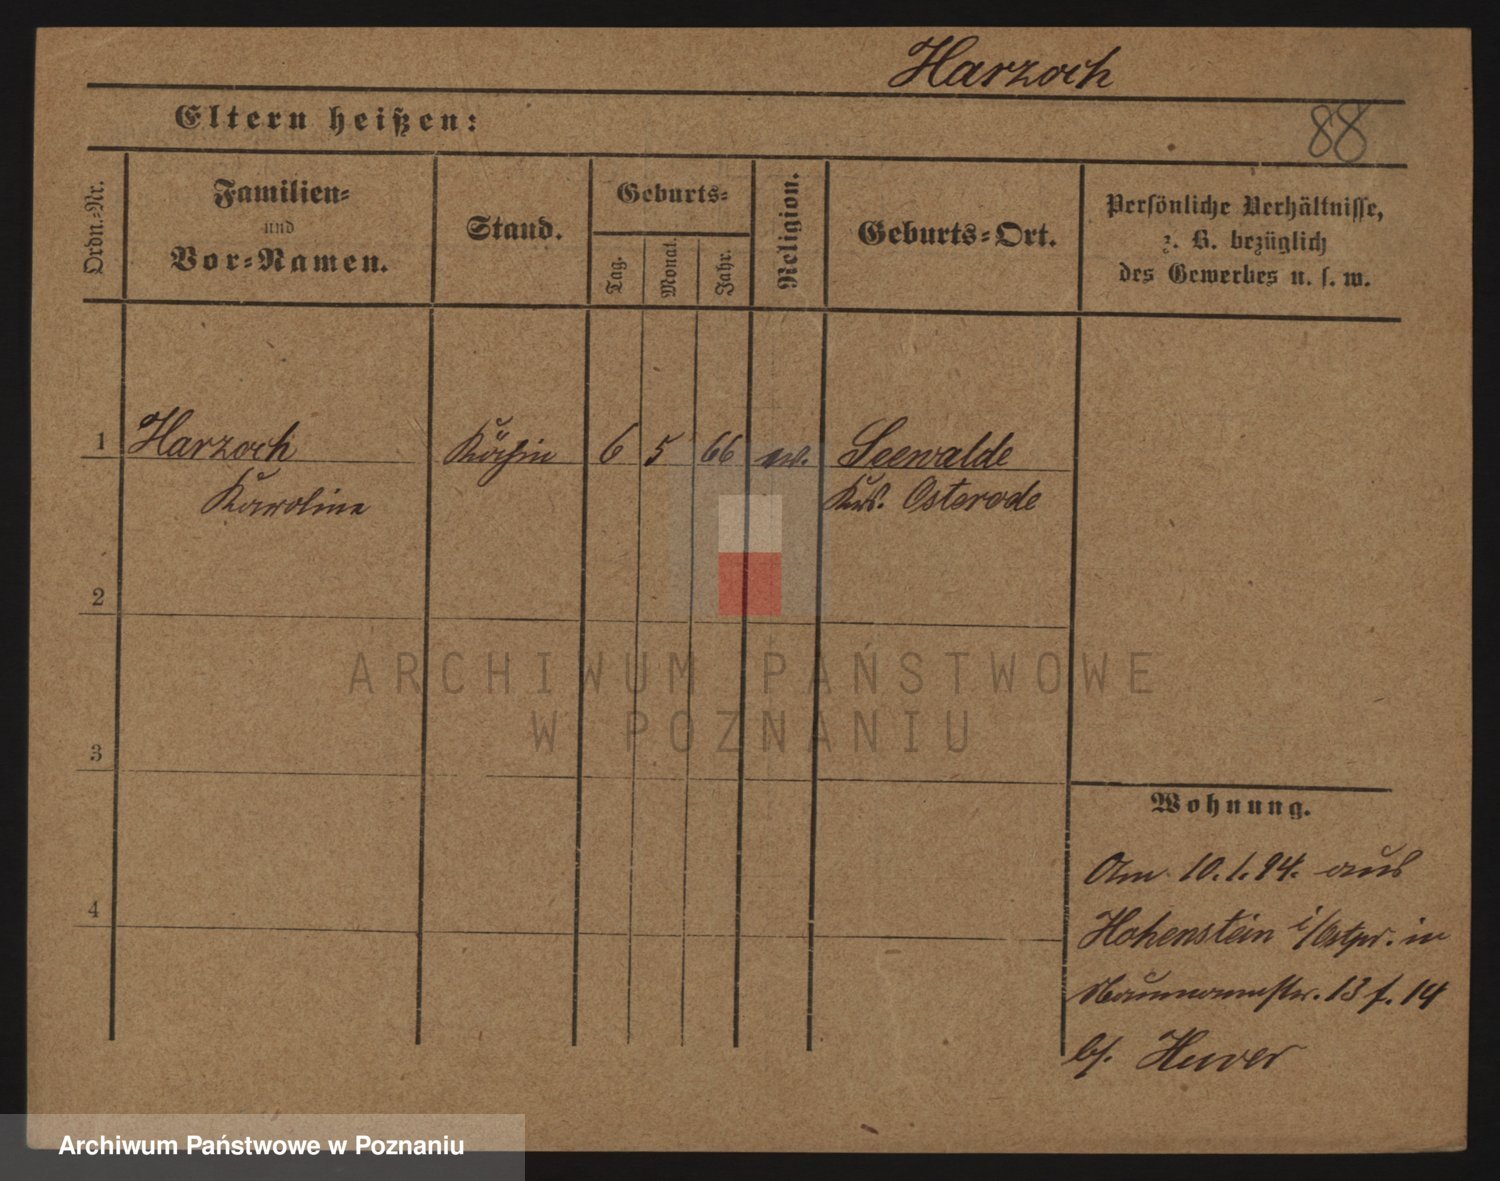 Harzoch
88
Eltern heißen:
Ordn.-Nr.
Familien-
und
Vor-Namen.
Stand.
Geburts-
Tag.
Monat.
Jahr.
Religion.
Geburts-Ort.
Persönliche Verhältnisse,
z. B. bezüglich
des Gewerbes u. s. w.
1 Harzoch Köchin 6 5 66 ev. Seewalde
Karoline Krs. Osterode
2
3
4
ARCHIWUM PAŃSTWOWE
W POZNANIU
Wohnung.
Am 10.1.94. aus
Hohenstein i/Ostpr. in
Naumannstr. 13 f. 14
bei Huver
Archiwum Państwowe w Poznaniu